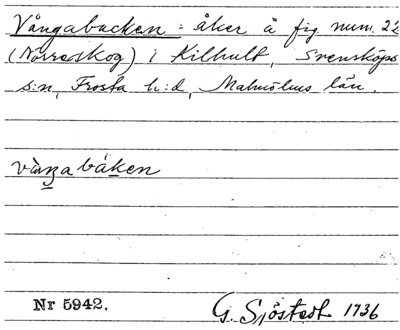 Vångabacken : åker å fig. num. 22
(Norreskog) i Kilhult, Svensköps
s:n, Frosta h:d, Malmöhus län.
våŋabáken
Nr 5942.
G. Sjöstedt 1936